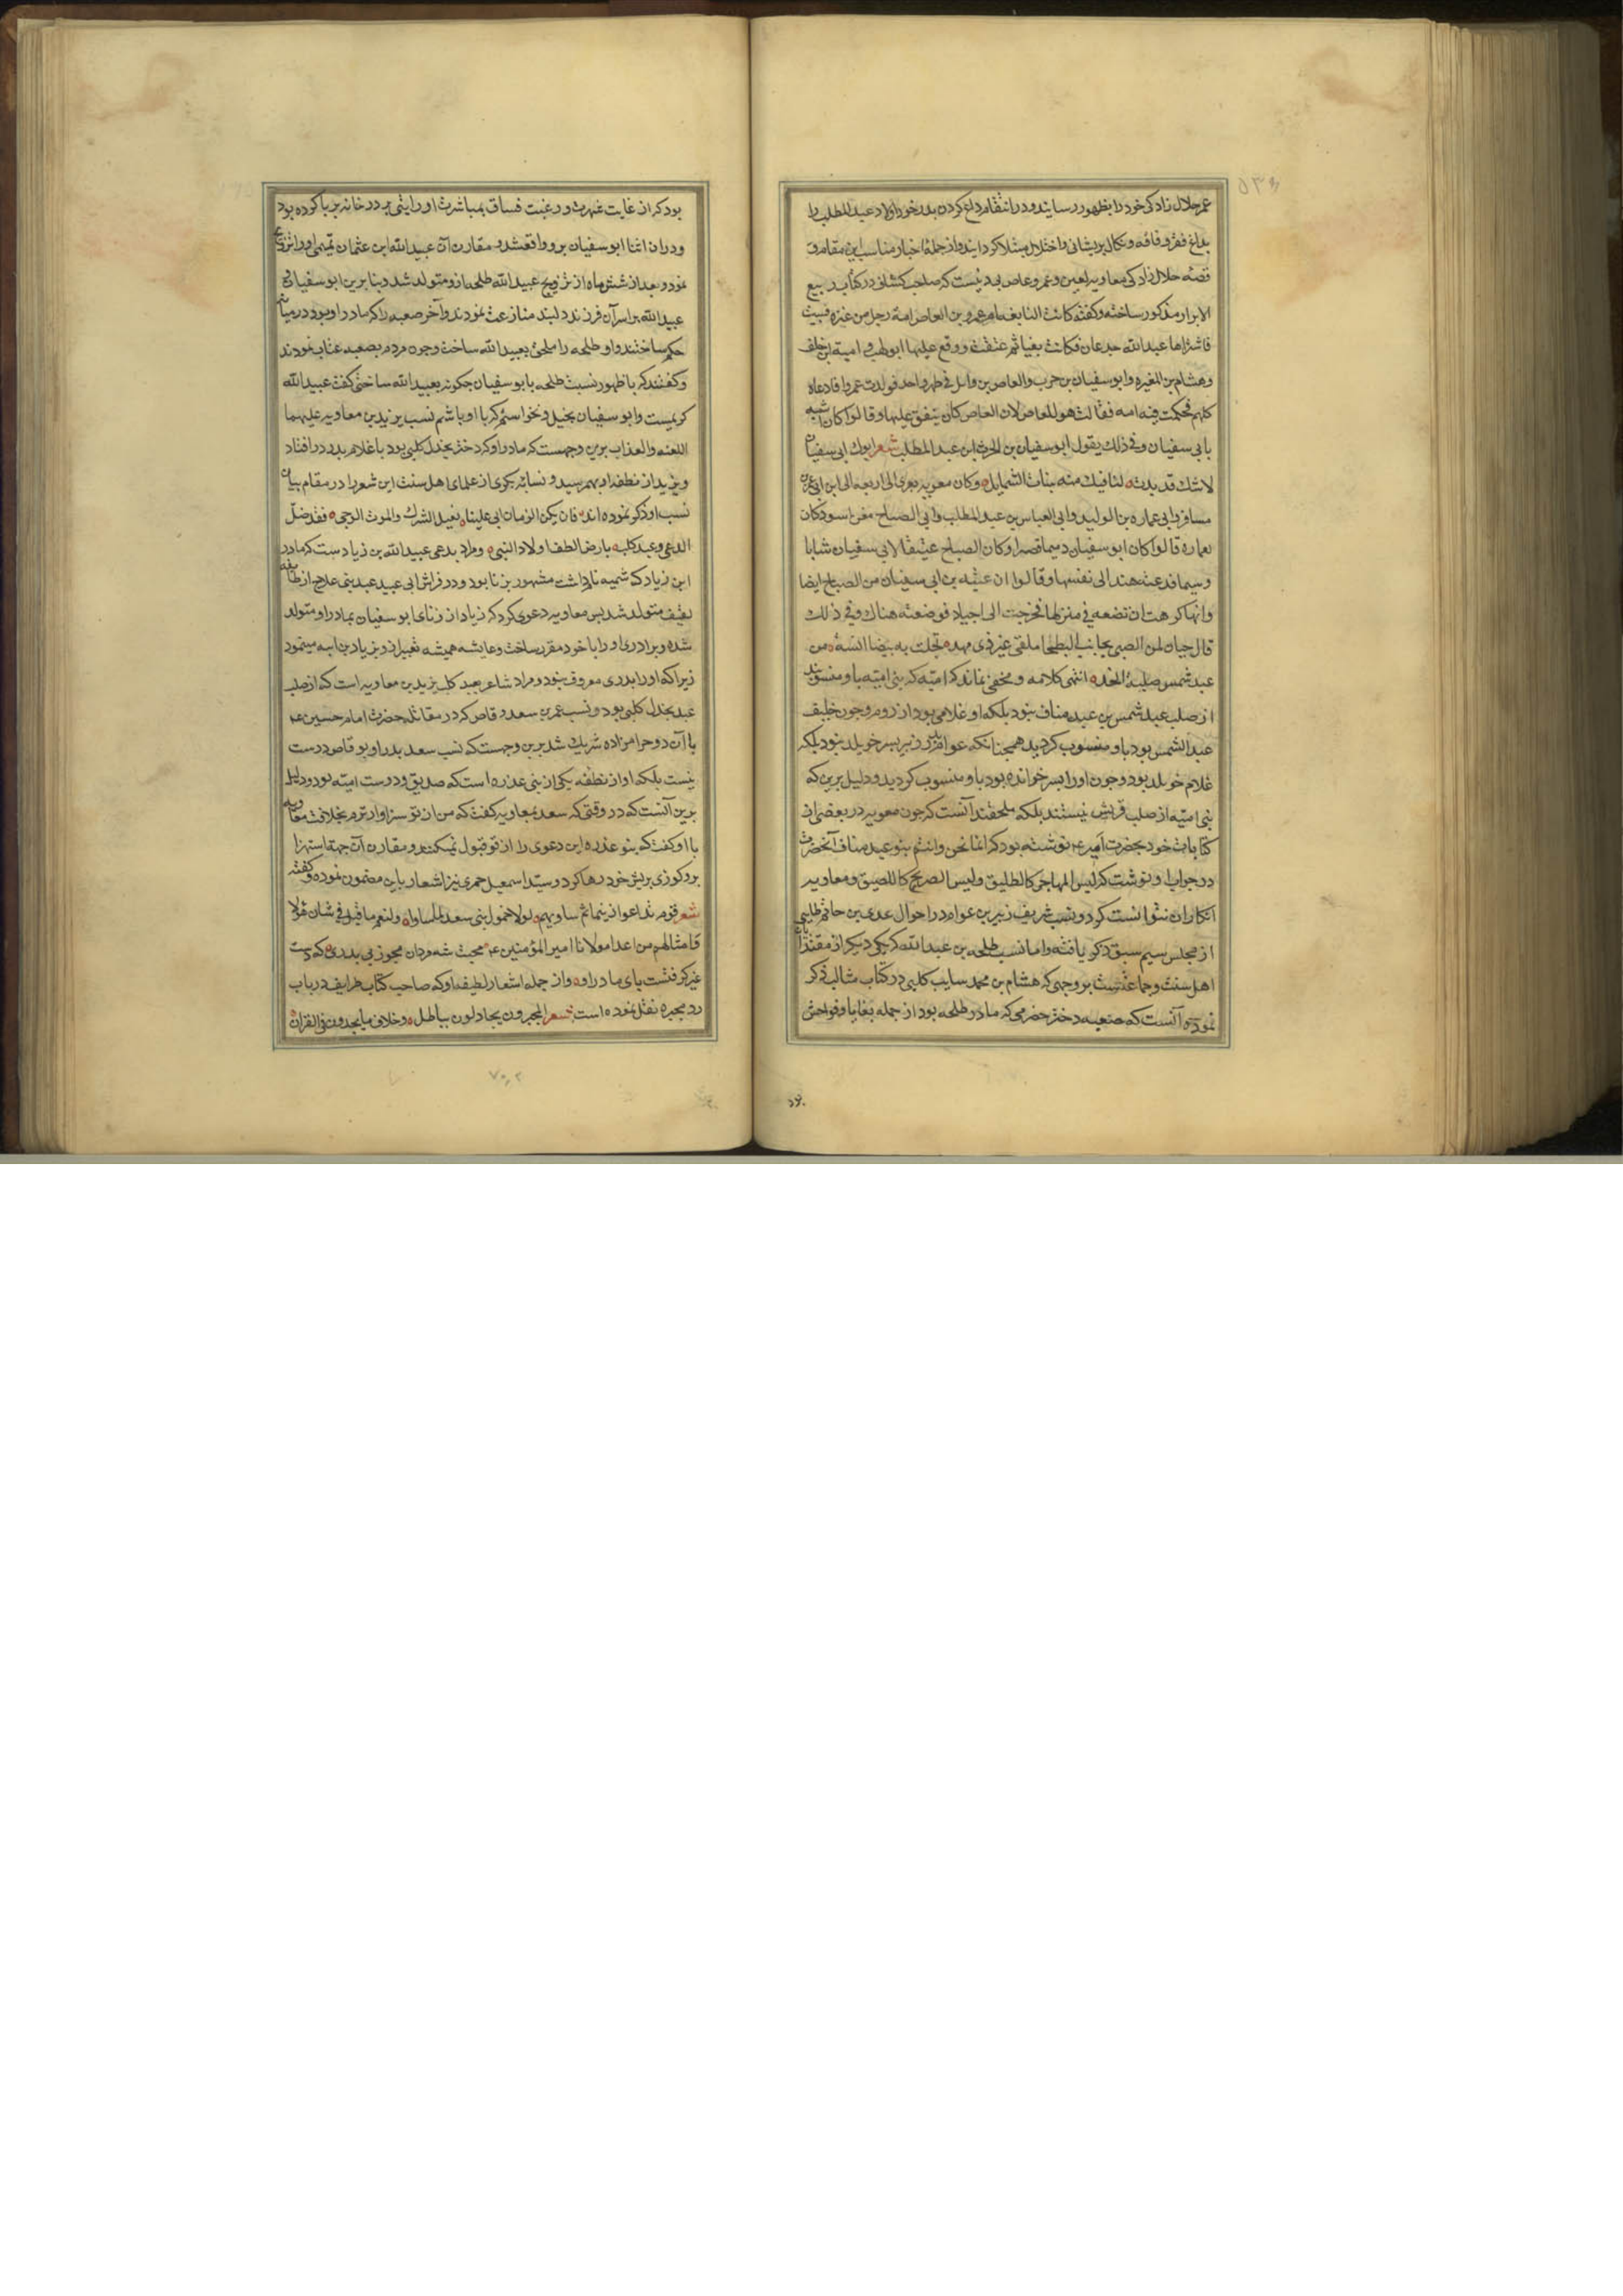 عمر حلال زادکی خود را بظهور رسایند و در انتقام داغ کردن پدر خود اولاد عبد المطلب را
بداغ فقر و فاقه و نکال پریشانی و اختلال مبتلا کردایند و از جملهٔ اخبار مناسب این مقام و
قصهٔ حلال زادکی معاویه لعین و عمرو عاص بی دینست که صاحب کشاف در کتاب ربیع
الابرار مذکور ساخته و کفته کانت النابغه ام عمرو بن العاص امة رجل من عنزه فسبیت
فاشتراها عبد الله جدعان فکانت بغیا ثم عتقت و وقع علیها ابو لهب و امیة ابن خلف
و هشام بن المغیره و ابو سفیان بن حرب و العاص بن وایل فی طهر واحد فولدت عمروا فادعاه
کلهم فحکمت فیه امه فقالت هو للعاص لان العاص کان ینفق علیها و قالوا کان اشبه
بابی سفیان و فی ذلک یقول ابو سفیان بن الحرث ابن عبد المطلب شعر ابوک ابی سفیان
لاشک قد بدت لنا فیک منه بینات الشمایل و کان معویه یعزی الی اربعه الی ابن ابی عمرو
مسافر و ابی عماره بن الولید و ابی العباس بن عبد المطلب و ابی الصباح مغن اسود کان
لعماره قالوا کان ابو سفیان دمیما قصیرا و کان الصباح عسیفا لابی سفیان شابا
وسیما فدعته هند الی نفسها و قالوا ان عتبه بن ابی سفیان من الصباح ایضا
و انها کرهت ان تضعه فی منزلها فخرجت الی اجیاد فوضعته هناک و فی ذلک
قال حسان لمن الصبی بجانب البطحا ملقی غیر ذی مهد نجلت به بیضا انسه من
عبد شمس صلبة الخد انتهی کلامه و مخفی نماند که امیّه که بنی امیّه باو منسوبند
از صلب عبد شمس بن عبد مناف نبود بلکه او غلامی بود از روم و چون حلیف
عبد الشمس بود باو منسوب کردید همچنانکه عوام پدر زبیر پسر خویلد نبود بلکه
غلام خویلد بود و چون او را پسر خوانده بود باو منسوب کردید و دلیل برین که
بنی امیّه از صلب قریش نیستند بلکه ملحقند آنست که چون معویه در بعضی از
کتابات خود بحضرت امیر ع نوشته بود که انما نحن و انتم بنو عبد مناف آنحضرت
در جواب او نوشت که لیس المهاجر کالطلیق و لیس الصریح کاللصیق و معاویه
انکار ان نتوانست کرد و نسب شریف زبیر بن عوام در احوال عدی بن حاتم طایی
از مجلس سیم سبق ذکر یافته و اما نسب طلحه بن عبد الله که یکی دیکر از مقتدایان
اهل سنت و جماعتست بر وجهی که هشام بن محمد سایب کلبی در کتاب مثالب ذکر
نموده آنست که صعبه دختر حضرمی که مادر طلحه بود از جمله بغایا و فواحش
بود که از غایت شهرت و رغبت فساق بمباشرت او رایتی بر در خانه بر پا کرده بود
و در ان اثنا ابو سفیان برو واقع شد و مقارن آن عبید الله ابن عثمان تیمی او را تزویج
نمود و بعد از شش ماه از تزویج عبید الله طلحه ازو متولد شد و بنا برین ابو سفیان و
عبید الله بر اسر آن فرزند دلبند منازعت نمودند و آخر صعبه را که مادر او بود در میان
حکم ساختند و او طلحه را ملحق بعبید الله ساخت و چون مردم بصعبه عتاب نمودند
و کفتند که با ظهور نسبت طلحه بابو سفیان چکونه بعبید الله ساختی کفت عبید الله
کریمست و ابو سفیان بخیل و نخواستم که با او باشم نسب یزید بن معاویه علیهما
اللعنه و العذاب برین وجهست که مادر او که دختر بجدل کلبی بود با غلام پدر در افتاد
و یزید از نطفه او بهم رسید و نسابه بکری از علمای اهل سنت این شعر را در مقام بیان
نسب او ذکر نموده اند فان یکن الزمان ابی علینا بغید الشرک و الموت الوحی فقد ضلّ
الدعی و عبد کلب بارض الطف اولاد النبی و مراد بدعی عبید الله بن زیادست که مادر
ابن زیاد که سمیه نام داشت مشهور بزنا بود و در فراش ابی عبید عبد بنی علاج از طایفه
ثقیف متولد شد پس معاویه دعوی کرد که زیاد از زنای ابو سفیان بمادر او متولد
شده و برادری او را با خود مقرر ساخت و عایشه همیشه تعبیر ازو بزیاد بن ابیه مینمود
زیرا که او را پدری معروف نبود و مراد شاعر بعبد کلب یزید بن معاویه است که از صلب
عبد بجدل کلبی بود و نسب عمر بن سعد وقاص که در مقاتله حضرت امام حسین ع
با آن دو حرامزاده شریک شد برین وجهست که نسب سعد پدر او بوقاص درست
نیست بلکه او از نطفه یکی از بنی عذره است که صدیق و دوست امیّه بود و دلیل
برین آنست که در وقتی که سعد بمعاویه کفت که من از تو سزاوارترم بخلافت معاویه
با او کفت که بنو عذره این دعوی را از تو قبول نمیکنند و مقارن آن جهة استهزا
برو کوزی بریش خود رها کرد و سید اسمعیل حمیری نیز اشعار باین مضمون نموده و کفته
شعر قوم تداعوا زنیما ثم ساویهم لولا خمول بنی سعد لما ساوا و لنعم ما قیل فی شان هؤلا
و امثالهم من اعدا مولانا امیر المؤمنین ع محبت شه مردان مجوز بی پدری که دست
غیر کرفتست پای مادر او و از جمله اشعار لطیفه او که صاحب کتاب طرایف در باب
رد مجبره نقل نموده است شعر المجبرون یجادلون بباطل و خلاف ما یجدون فی القران